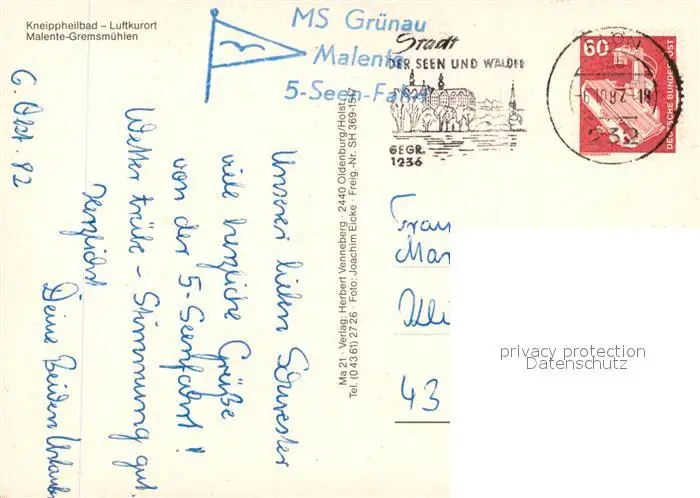 Kneippheilbad – Luftkurort
Malente-Gremsmühlen
MS Grünau
Malente
5-Seen-Fahrt
Stadt
DER SEEN UND WÄLDER
GEGR.
1236
60
DEUTSCHE BUNDESPOST
232
6. Okt. 82
Unserer lieben Schwester
viele herzliche Grüße
von der 5-Seenfahrt!
Wetter trübe – Stimmung gut.
Herzlichst
Deine Beiden Urlauber
Ma 21 · Verlag: Herbert Venneberg · 2440 Oldenburg/Holst.
Tel. (0 43 61) 27 26 · Foto: Joachim Eicke · Freig.-Nr. SH 369-151
Frau
Mar
43
privacy protection
Datenschutz